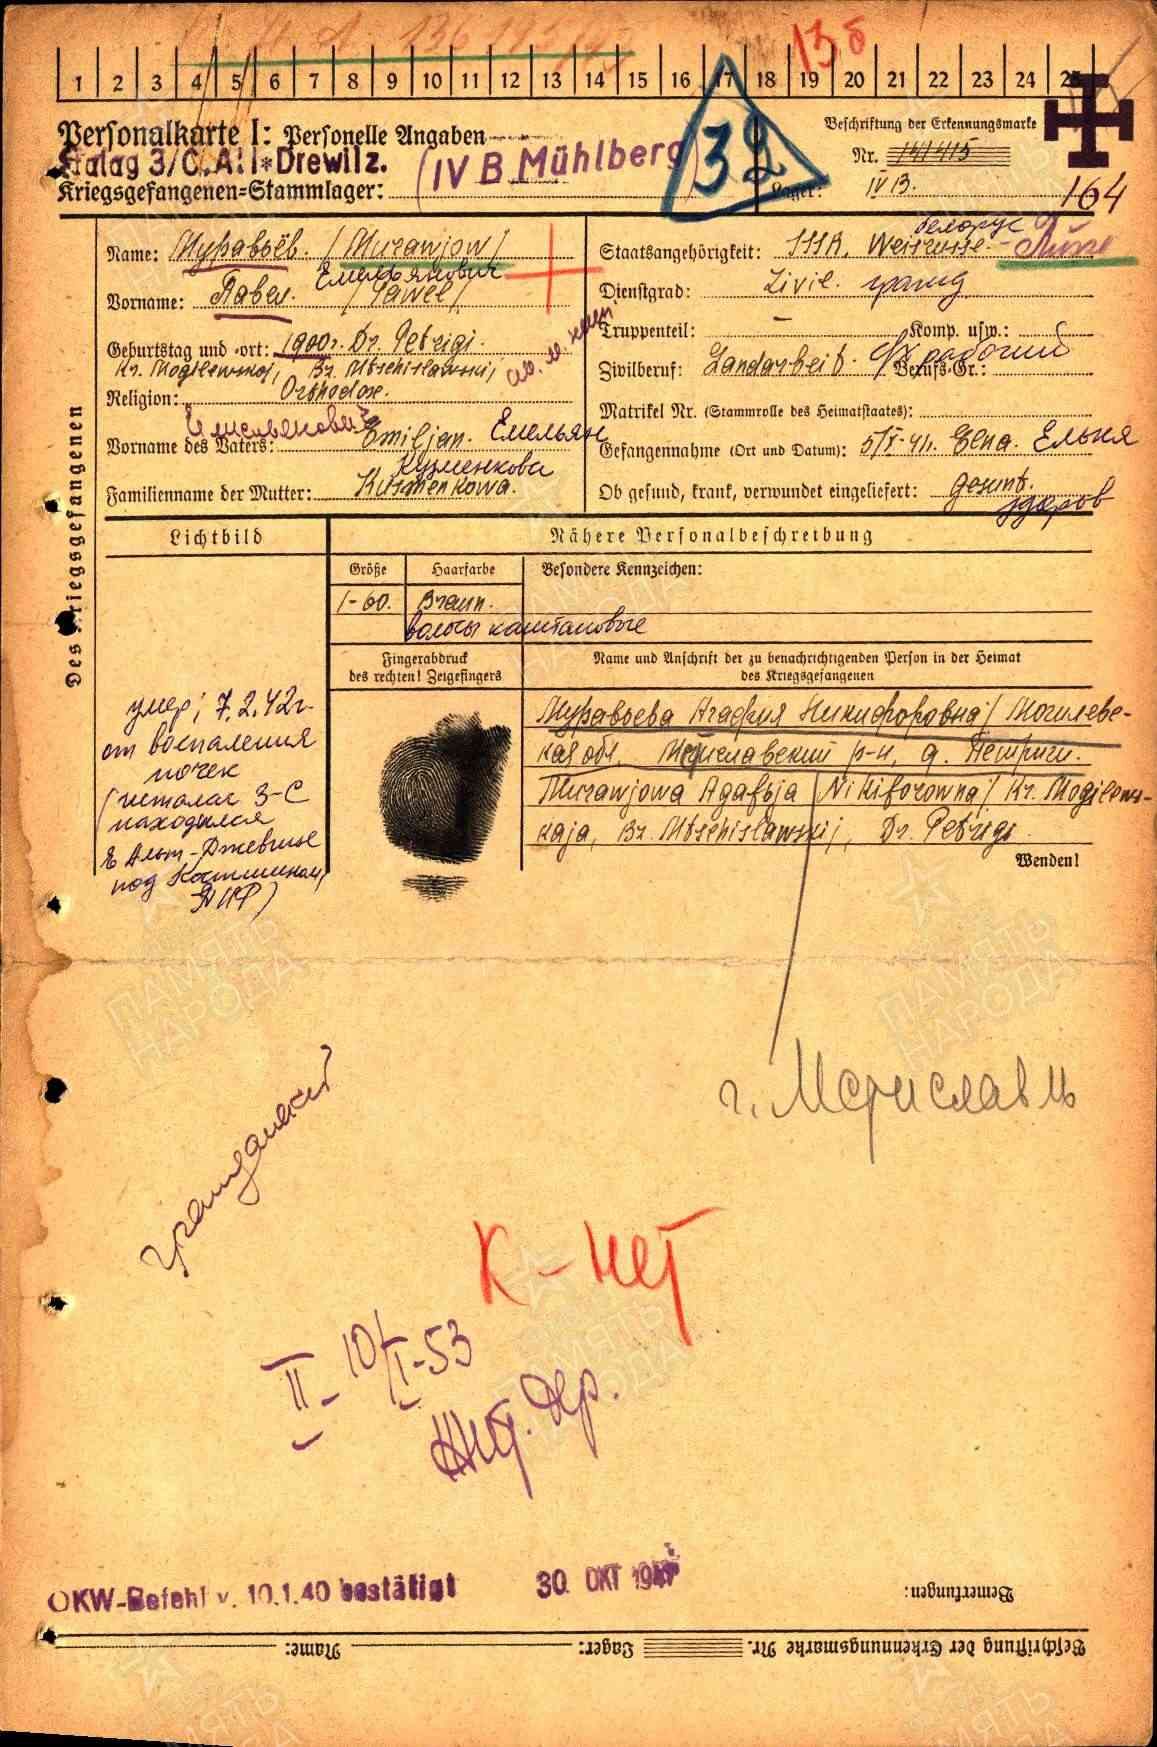 136
1 2 3 4 5 6 7 8 9 10 11 12 13 14 15 16 17 18 19 20 21 22 23 24 25
Personalkarte I: Personelle Angaben
Beschriftung der Erkennungsmarke
Stalag 3/C. Alt-Drewitz.
(IV B Mühlberg)
32
Nr. 141415
Kriegsgefangenen-Stammlager:
Lager: IV B.
164
Des Kriegsgefangenen
Name: Муравьёв. /Murawjow/
Емельянович
Vorname: Павел. /Pawel/
Geburtstag und -ort: 1900г. Dr. Petrigi.
Kr. Mogilewskoj, Br. Mtschislawskij,
Religion: Orthodox.
Vorname des Vaters: Emiljan. Емельян
Кузменкова
Familienname der Mutter: Kusmenkowa.
белорус
Staatsangehörigkeit: Weisrusse.
Dienstgrad: Zivil. гражд
Truppenteil: – Komp. usw.:
Zivilberuf: Landarbeit. с/х рабочий Berufs-Gr.:
Matrikel Nr. (Stammrolle des Heimatstaates):
Gefangennahme (Ort und Datum): Elna. Ельня
Ob gesund, krank, verwundet eingeliefert: Gesund.
здоров
Lichtbild
Nähere Personalbeschreibung
Größe Haarfarbe Besondere Kennzeichen:
1-60. Braun.
волосы каштановые
Fingerabdruck
des rechten! Zeigefingers
Name und Anschrift der zu benachrichtigenden Person in der Heimat
des Kriegsgefangenen
Муравьева Агафия Никифоровна/ Могилевс-
кая обл. Мстиславский р-н, д. Петриги.
Murawjowa Agafija Nikiforowna/ Kr. Mogilews-
kaja, Br. Mtschislawskij, Dr. Petrigi.
Wenden!
умер 7.2.42г.
от воспаления
почек
(шталаг 3-С
находился
в Альт-Древице
под Кюстрином,
г. Мстиславль
гражданский
К-нет
II- 10/I-53
OKW-Befehl v. 10.1.40 bestätigt
30. OKT 1941
Bemerkungen:
Beschriftung der Erkennungsmarke Nr. Lager: Name:
ПАМЯТЬ
НАРОДА
ПАМЯТЬ
НАРОДА
ПАМЯТЬ
НАРОДА